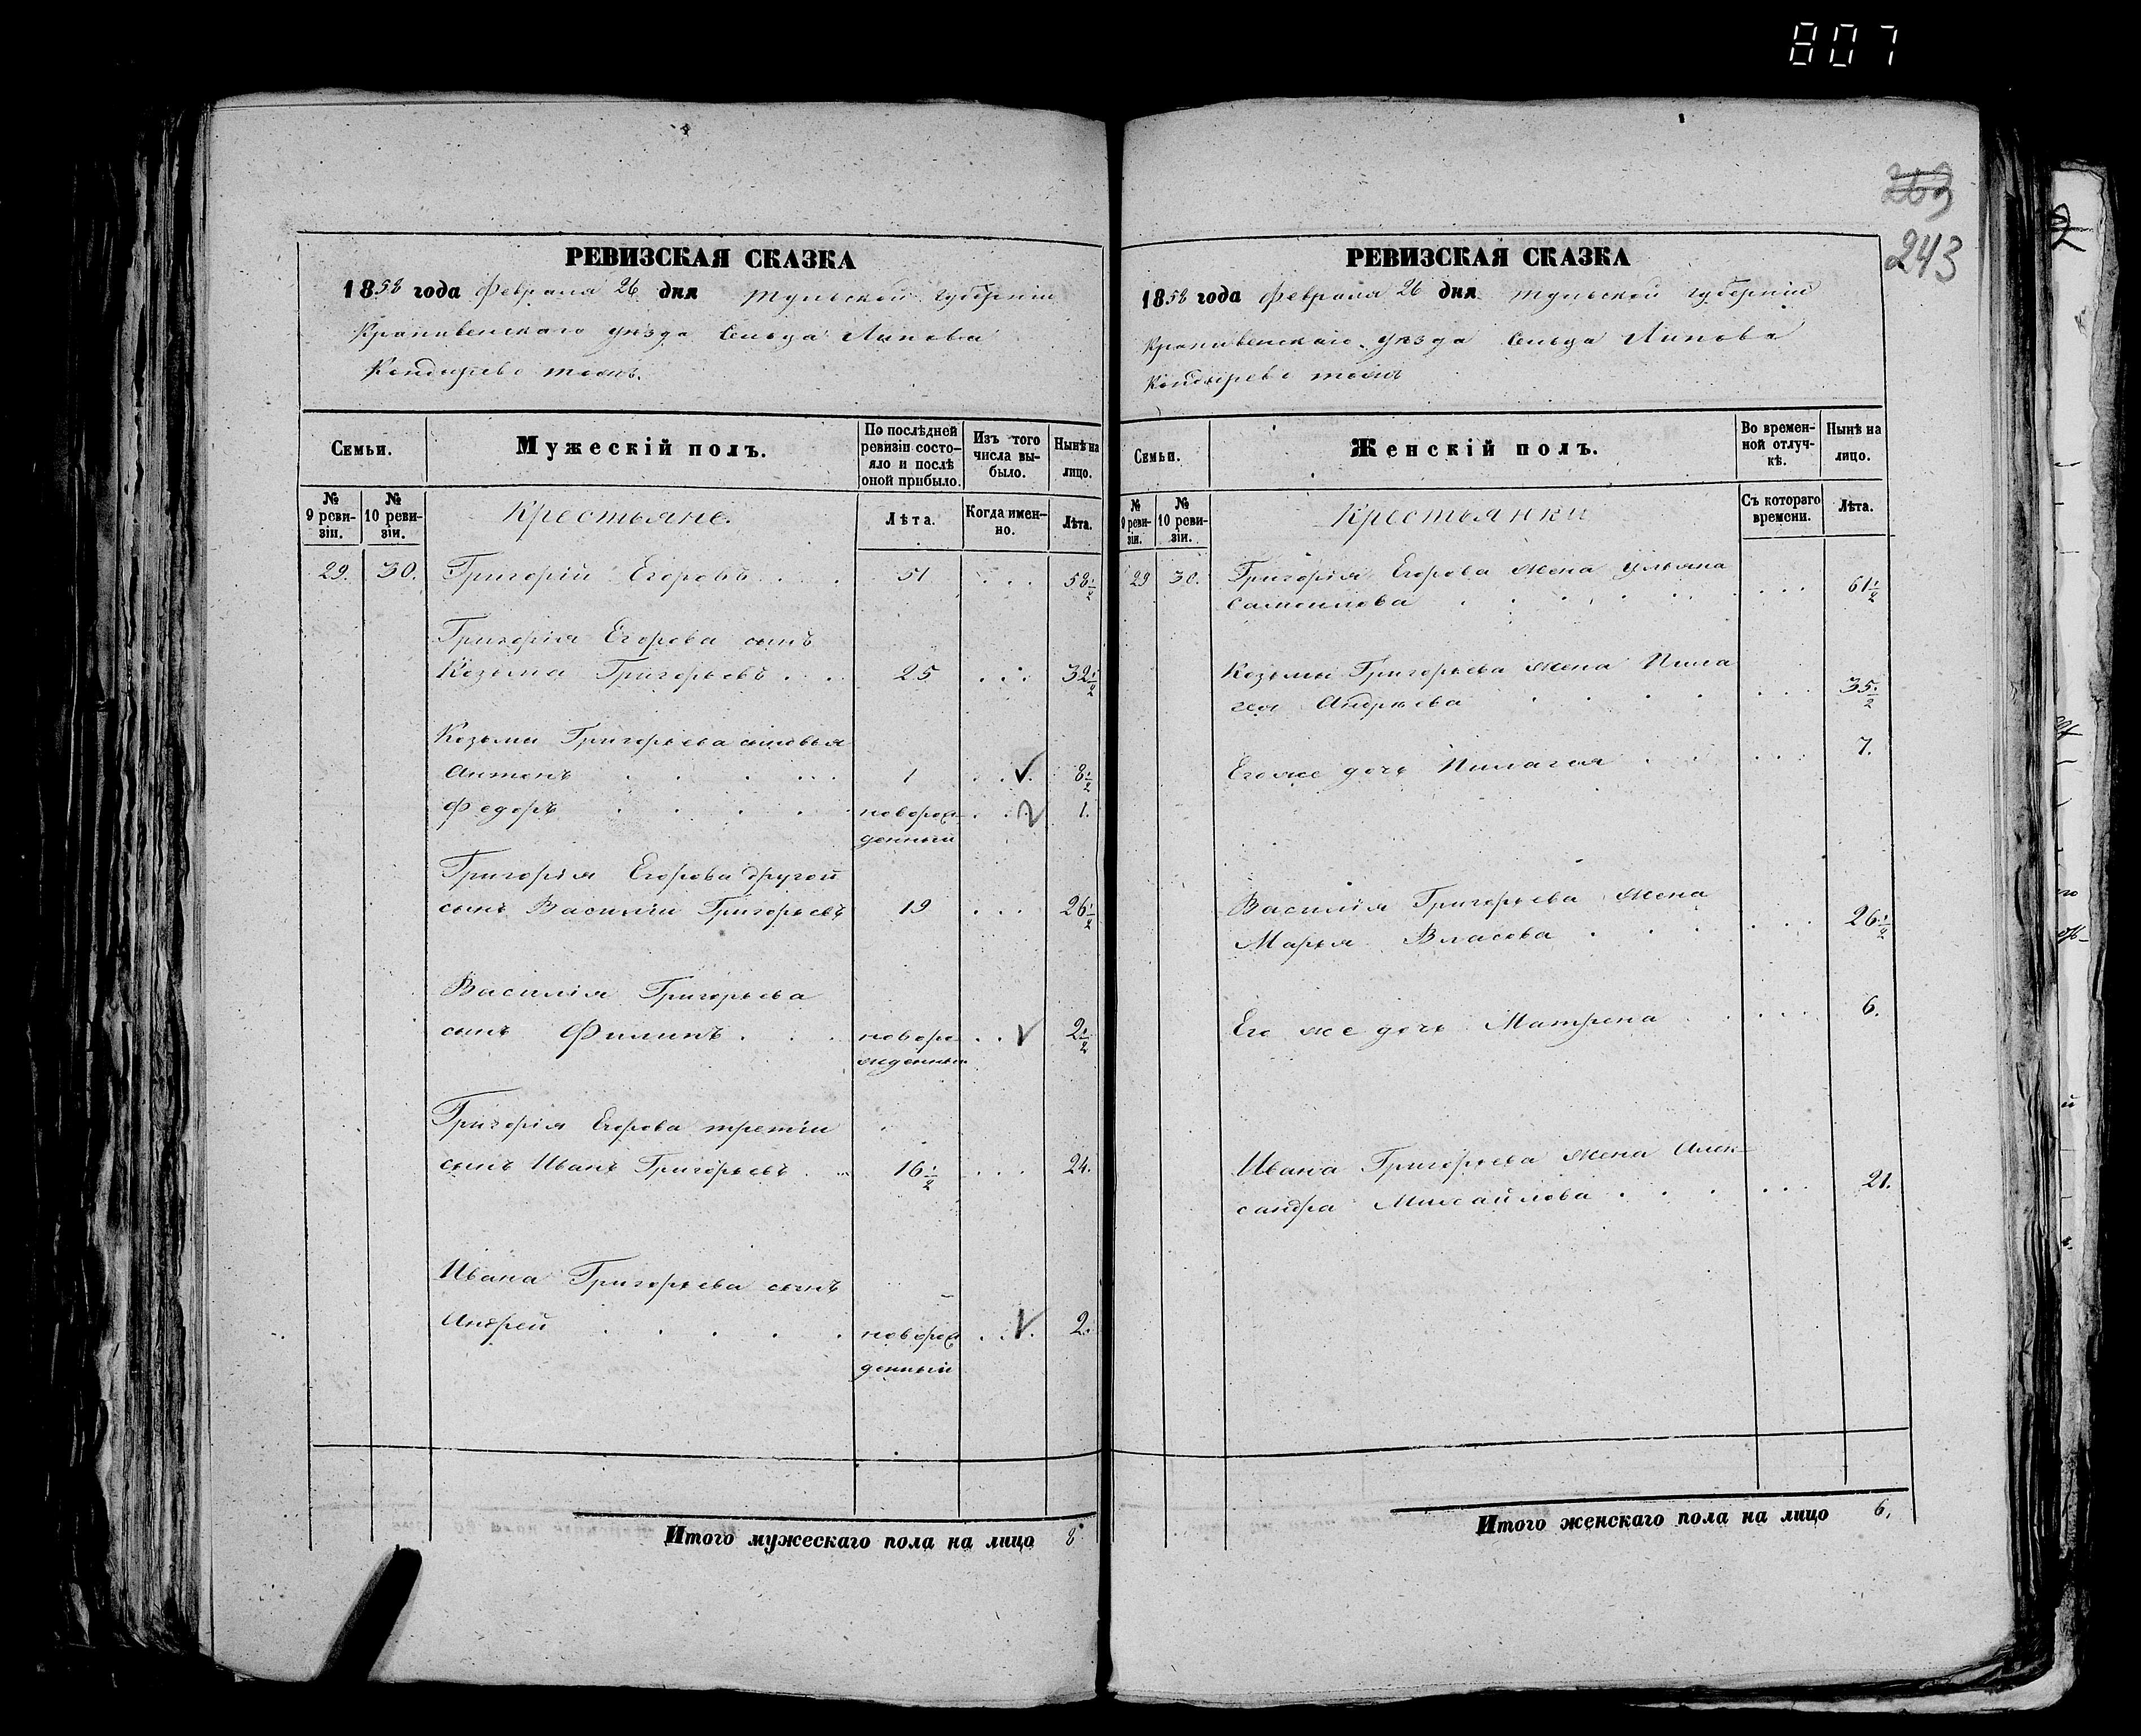 807
263
243
РЕВИЗСКАЯ СКАЗКА
1858 года Февраля 26 дня Тульской губернiи
Крапивенскаго уѣзда Сельца Липова
Кондырево тожъ.
Семьи.
Мужескiй полъ.
По послѣдней ревизiи состо-
яло и послѣ оной прибыло.
Изъ того числа вы-
было.
Нынѣ на лицо.
№ 9 реви-
зiи.
№ 10 реви-
зiи.
Крестьяне.
Лѣта.
Когда имен-
но.
Лѣта.
29. 30. Григорiй Егоровъ . . . 51 . . . 58 1/2
Григорiя Егорова сынъ
Козьма Григорьевъ . . . 25 . . . 32 1/2
Козьмы Григорьева сыновья
Антонъ . . . . . 1 . . . 8 1/2
Федоръ . . . . новорож- . . . 1.
денный
Григорiя Егорова другой
сынъ Василiй Григорьевъ 19 . . . 26 1/2
Василiя Григорьева
сынъ Филипъ . . . новоро- . . 2 1/2
жденный
Григорiя Егорова третiй
сынъ Иванъ Григорьевъ . . 16 1/2 . . . 24.
Ивана Григорьева сынъ
Андрей . . . . . новорож . . . 2.
денный
Итого мужескаго пола на лицо 8
РЕВИЗСКАЯ СКАЗКА
1858 года Февраля 26 дня Тульской губернiи
Крапивенскаго уѣзда Сельца Липова
Кондырево тожъ
Семьи.
Женскiй полъ.
Во времен-
ной отлуч-
кѣ.
Нынѣ на лицо.
№ 9 реви-
зiи.
№ 10 реви-
зiи.
Крестьянки
Съ котораго времени.
Лѣта.
29 30. Григорiя Егорова жена Ульяна
Самоилова . . . . . . . . 61 1/2
Козьмы Григорьева жена Пила
гея Андрѣева . . . . . . . 35 1/2
Его же дочь Пилагея . . . . . 7.
Василiя Григорьева жена
Марья Власова . . . . . . 26 1/2
Его же дочь Матрена . . . . . 6.
Ивана Григорьева жена Алек-
сандра Михайлова . . . . . . 21.
Итого женскаго пола на лицо 6.